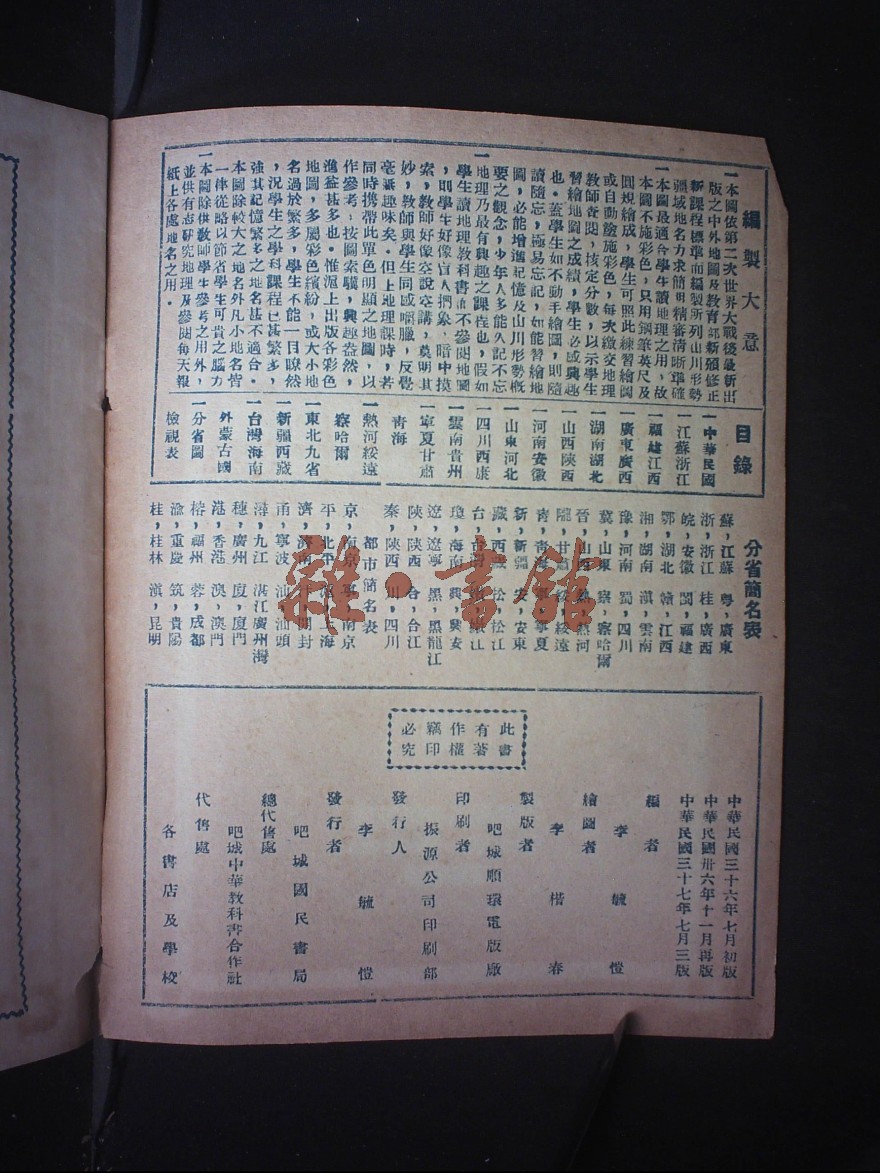 編製大意
一本圖依第二次世界大戰後最新出
版之中外地圖及教育部新頒修正
新課程標準而編製所列山川形勢
疆域地名力求簡明精審清晰準確
一本圖最適合學生讀地理之用，故
本圖不施彩色，只用鋼筆英尺及
圓規繪成，學生可照此練習繪圖
或自動鹼施彩色，每次繳交地理
教師查閱，核定分數，以示學生
習繪地圖之成績，學生必感興趣
也。蓋學生如不動手繪圖，則隨
讀隨忘，極易忘記，如能習繪地
圖，必能增進記憶及山川形勢概
要之觀念，少年人多能久記不忘
一地理乃最有興趣之課程也，假如
學生讀地理教科書而不參閱地圖
，則學生好像盲人捫象，暗中摸
索，教師好像空說空講，莫明其
妙，教師與學生同感喎臘，反覺
毫無趣味矣。但上地理課時，若
同時携帶此單色明顯之地圖，以
作參考；按圖索驥，興趣盎然，
進益甚多也。惟滬上出版各彩色
地圖，多屬彩色繽紛，或大小地
名過於繁多，學生不能一目瞭然
，況學生之學科課程已甚繁多，
強其記憶繁多之地名甚不適合。
本圖除較大之地名外凡小地名皆
一律從略以節省學生可貴之腦力
一本圖除供教師學生參考之用外，
並供有志研究地理及參閱每天報
紙上各處地名之用。
目錄
一中華民國
一江蘇浙江
一福建江西
一廣東廣西
一湖南湖北
一山西陝西
一河南安徽
一山東河北
一四川西康
一雲南貴州
一寧夏甘肅
青海
一熱河綏遠
察哈爾
一東北九省
一新疆西藏
一台灣海南
外蒙古國
一分省圖
檢視表
分省簡名表
蘇，江蘇 粵，廣東
浙，浙江 桂，廣西
皖，安徽 閩，福建
鄂，湖北 贛，江西
湘，湖南 滇，雲南
豫，河南 蜀，四川
冀，山東 察，察哈爾
晉，山西 熱，熱河
隴，甘肅 綏，綏遠
靑，青海 寧，寧夏
新，新疆 安，安東
藏，西藏 松，松江
台，台灣 嫩，嫩江
瓊，海南 興，興安
遼，遼寧 黑，黑龍江
陝，陝西 合，合江
秦，陝西 川，四川
都市簡名表
京，南京 寧，南京
平，北平 滬，上海
濟，濟南 汴，開封
甬，寧波 汕，汕頭
潯，九江 湛江廣州灣
穗，廣州 廈，廈門
港，香港 澳，澳門
榕，福州 蓉，成都
渝，重慶 筑，貴陽
桂，桂林 滇，昆明
雜·書館
此書
有著
作權
竊印
必究
中華民國三十六年七月初版
中華民國卅六年十一月再版
中華民國三十七年七月三版
編者
李毓愷
繪圖者
李楷春
製版者
吧城順環電版廠
印刷者
振源公司印刷部
發行人
李毓愷
發行者
吧城國民書局
總代售處
吧城中華教科書合作社
代售處
各書店及學校